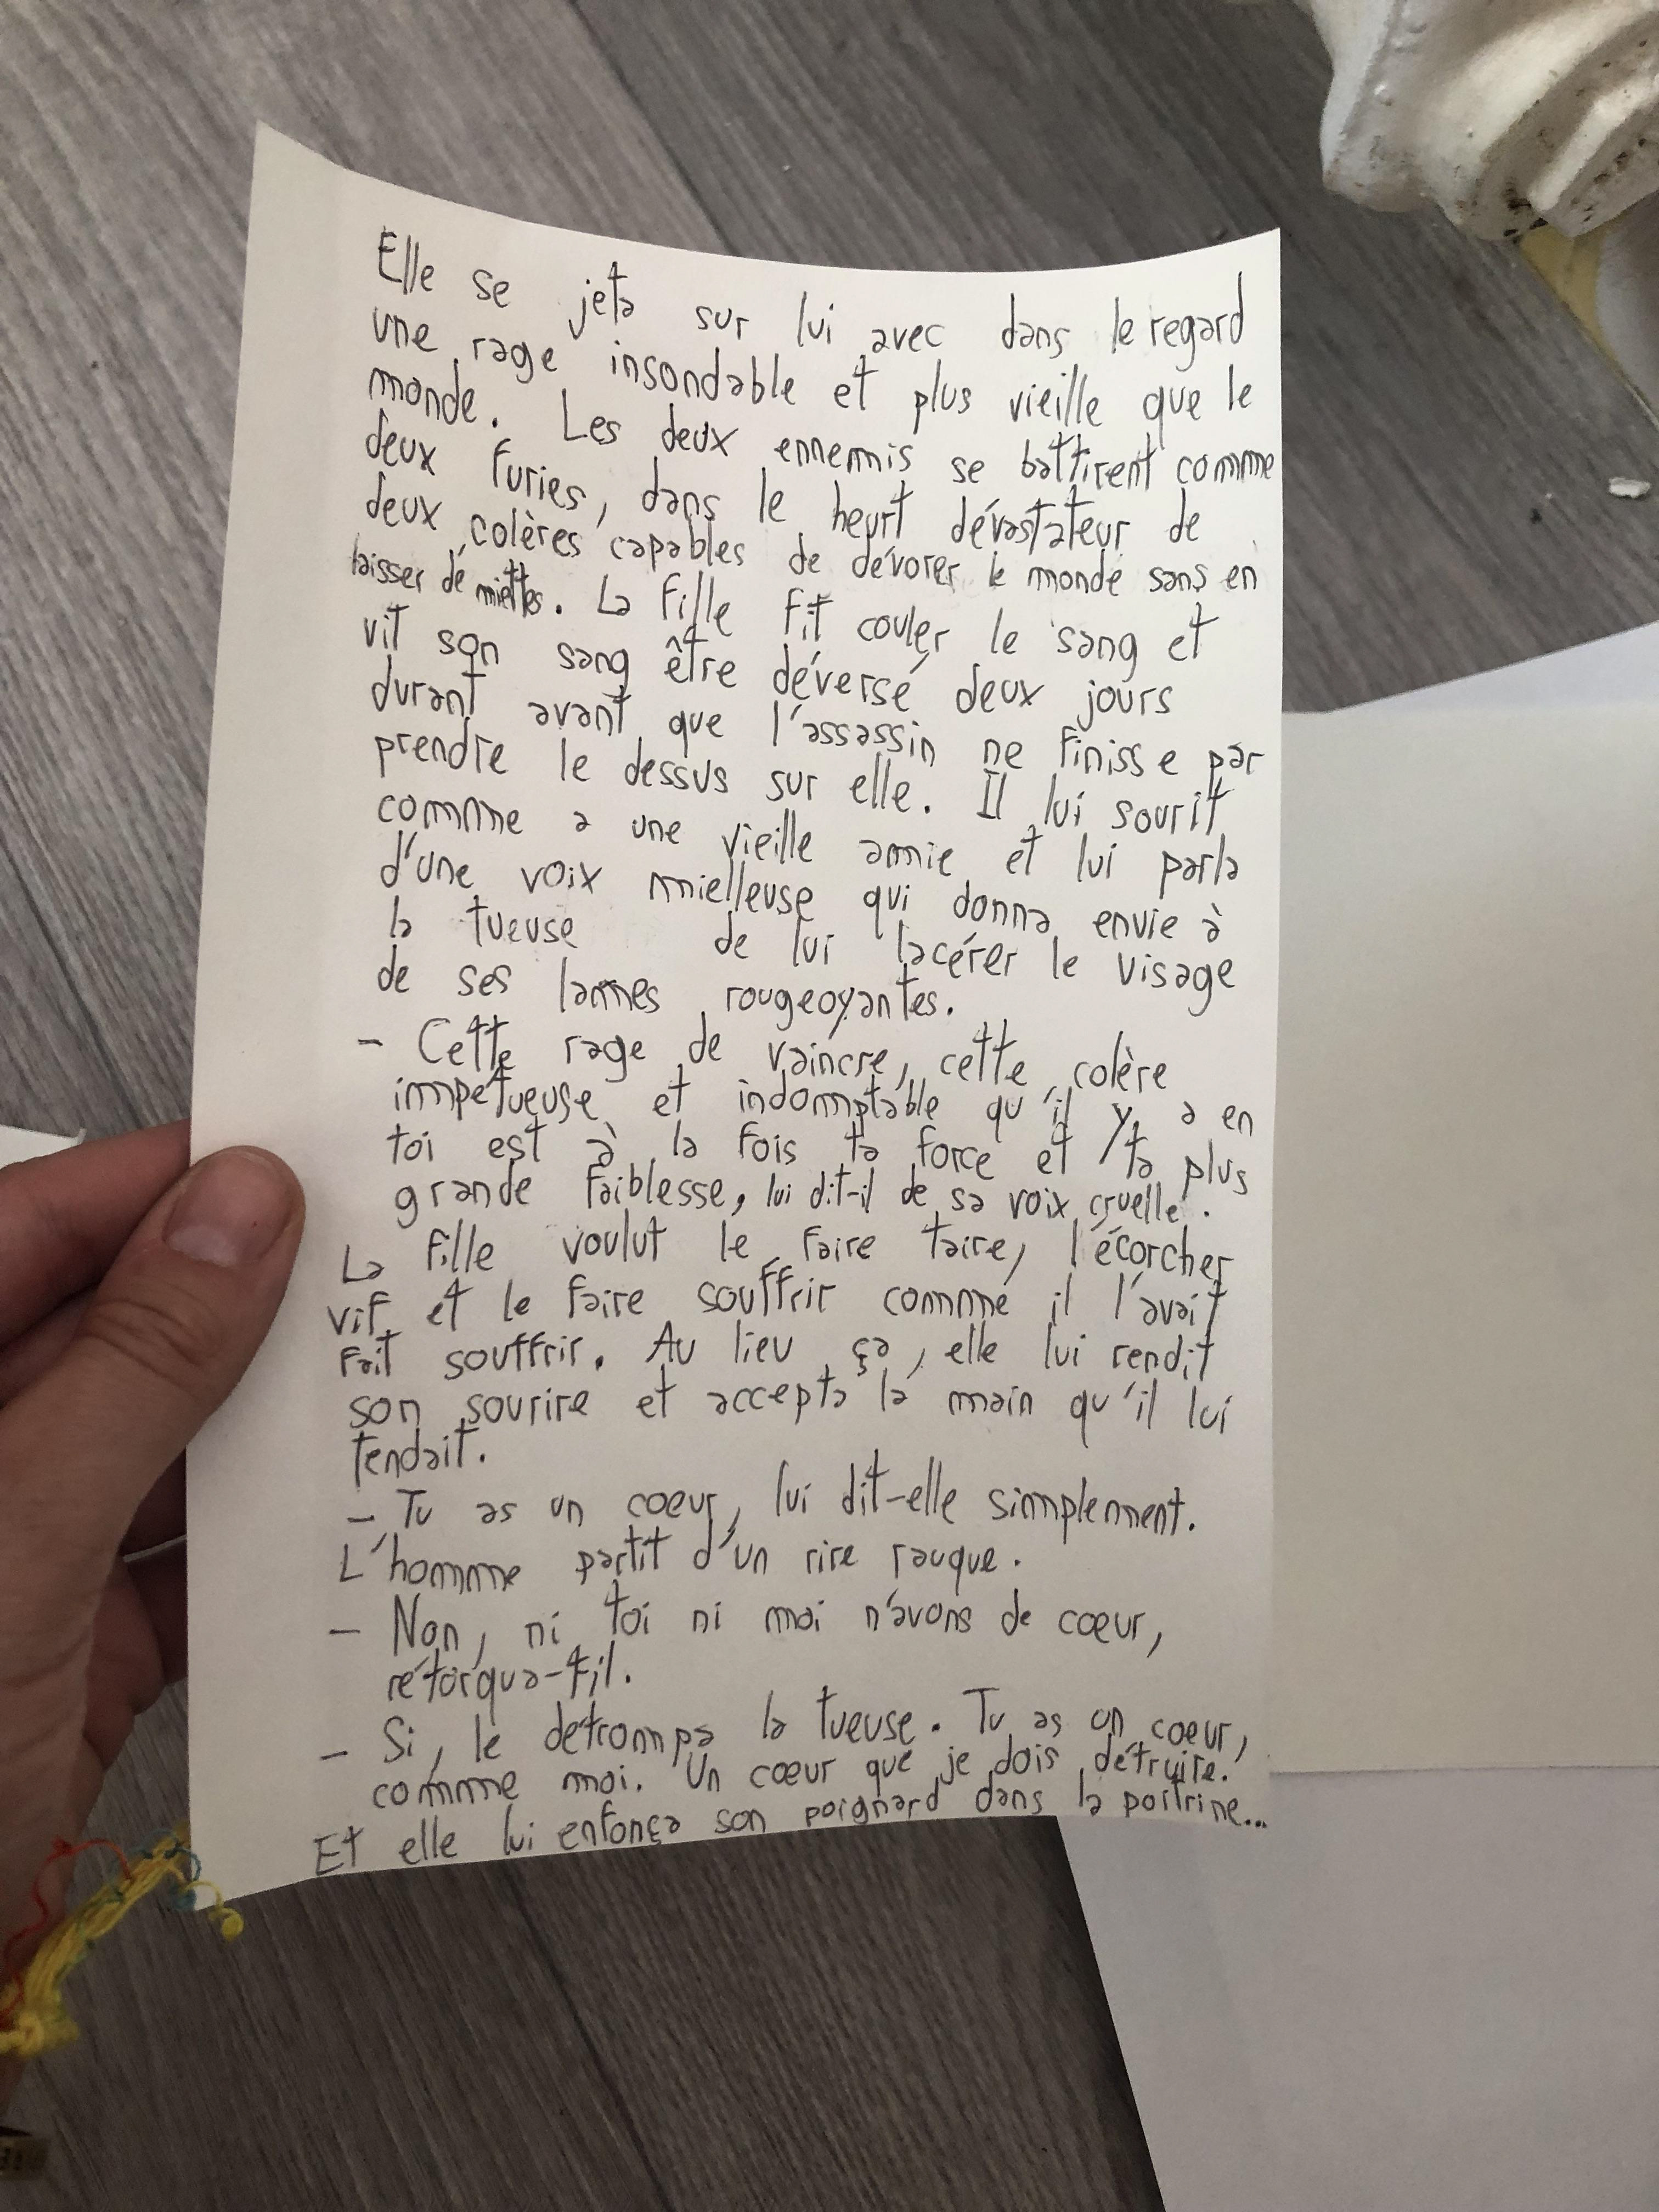 Elle se jeta sur lui avec dans le regard
une rage insondable et plus vieille que le
monde. Les deux ennemis se battirent comme
deux furies, dans le heurt dévastateur de
deux colères capables de dévorer le monde sans en
laisser de miettes. La fille fit couler le sang et
vit son sang être déversé deux jours
durant avant que l'assassin ne finisse par
prendre le dessus sur elle. Il lui sourit
comme a une vieille amie et lui parla
d'une voix mielleuse qui donna envie à
la tueuse de lui lacérer le visage
de ses lames rougeoyantes.
- Cette rage de vaincre, cette colère
impétueuse et indomptable qu'il y a en
toi est à la fois ta force et ta plus
grande faiblesse, lui dit-il de sa voix cruelle.
La fille voulut le faire taire, l'écorcher
vif et le faire souffrir comme il l'avait
fait souffrir. Au lieu ça, elle lui rendit
son sourire et accepta la main qu'il lui
tendait.
- Tu as un coeur, lui dit-elle simplement.
L'homme partit d'un rire rauque.
- Non, ni toi ni moi n'avons de cœur,
rétorqua-t-il.
- Si, le détrompa la tueuse. Tu as un coeur,
comme moi. Un cœur que je dois détruire.
Et elle lui enfonça son poignard dans la poitrine...